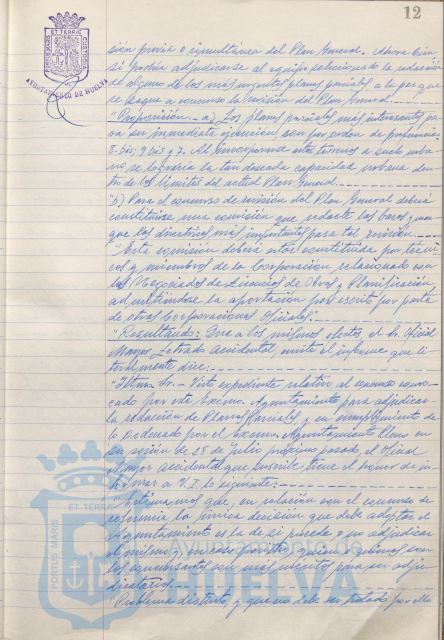 12
PORTUS MARIS ET TERRÆ CUSTODIA
AYUNTAMIENTO DE HUELVA
sión previa o simultánea del Plan General. Ahora bien
si podría adjudicarse al equipo seleccionado la redacción
del alguno de los más urgentes planes parciales a la par que
se saque a concurso la revisión del Plan General.
"Proposición.- a) Los planes parciales más interesantes pa-
ra su inmediata ejecución son por orden de preferencia:
8-bis; 9 bis y 7. Al incorporarse estos terrenos a suelo urba-
no se lograría la tan deseada capacidad urbana den-
tro de los límites del actual Plan General.
"b) Para el concurso de revisión del Plan General deberá
constituirse una comisión que redacte las bases y mar-
que las directrices más importantes para tal revisión.
"Esta comisión deberá estar constituida por técni-
cos y miembros de la Corporación relacionado con
los Negociados de Licencias de Obras y Planificación,
admitiéndose la aportación por escrito por parte
de otras Corporaciones Oficiales."
"Resultando: Que a los mismos efectos, el Sr. Oficial
Mayor Letrado accidental, emite el informe que li-
teralmente dice:
"Iltmo. Sr.- Visto expediente relativo al concurso convo-
cado por este Excmo. Ayuntamiento para adjudicar
la redacción de Planes Parciales, y en cumplimiento de
lo ordenado por el Excmo. Ayuntamiento Pleno en
su sesión de 25 de Julio próximo pasado, el Oficial
Mayor accidental que suscribe tiene el honor de in-
formar a V.I. lo siguiente:
"Estimamos que, en relación con el concurso de
referencia la única decisión que debe adoptar el
Ayuntamiento es la de si procede o no adjudicar
el mismo y en caso positivo, quien o quienes son
los concursantes con más méritos para ser adju-
dicatarios.
"Problema distinto, y que no debe ser tratado por ello
PORTUS MARIS ET TERRÆ
HUELVA